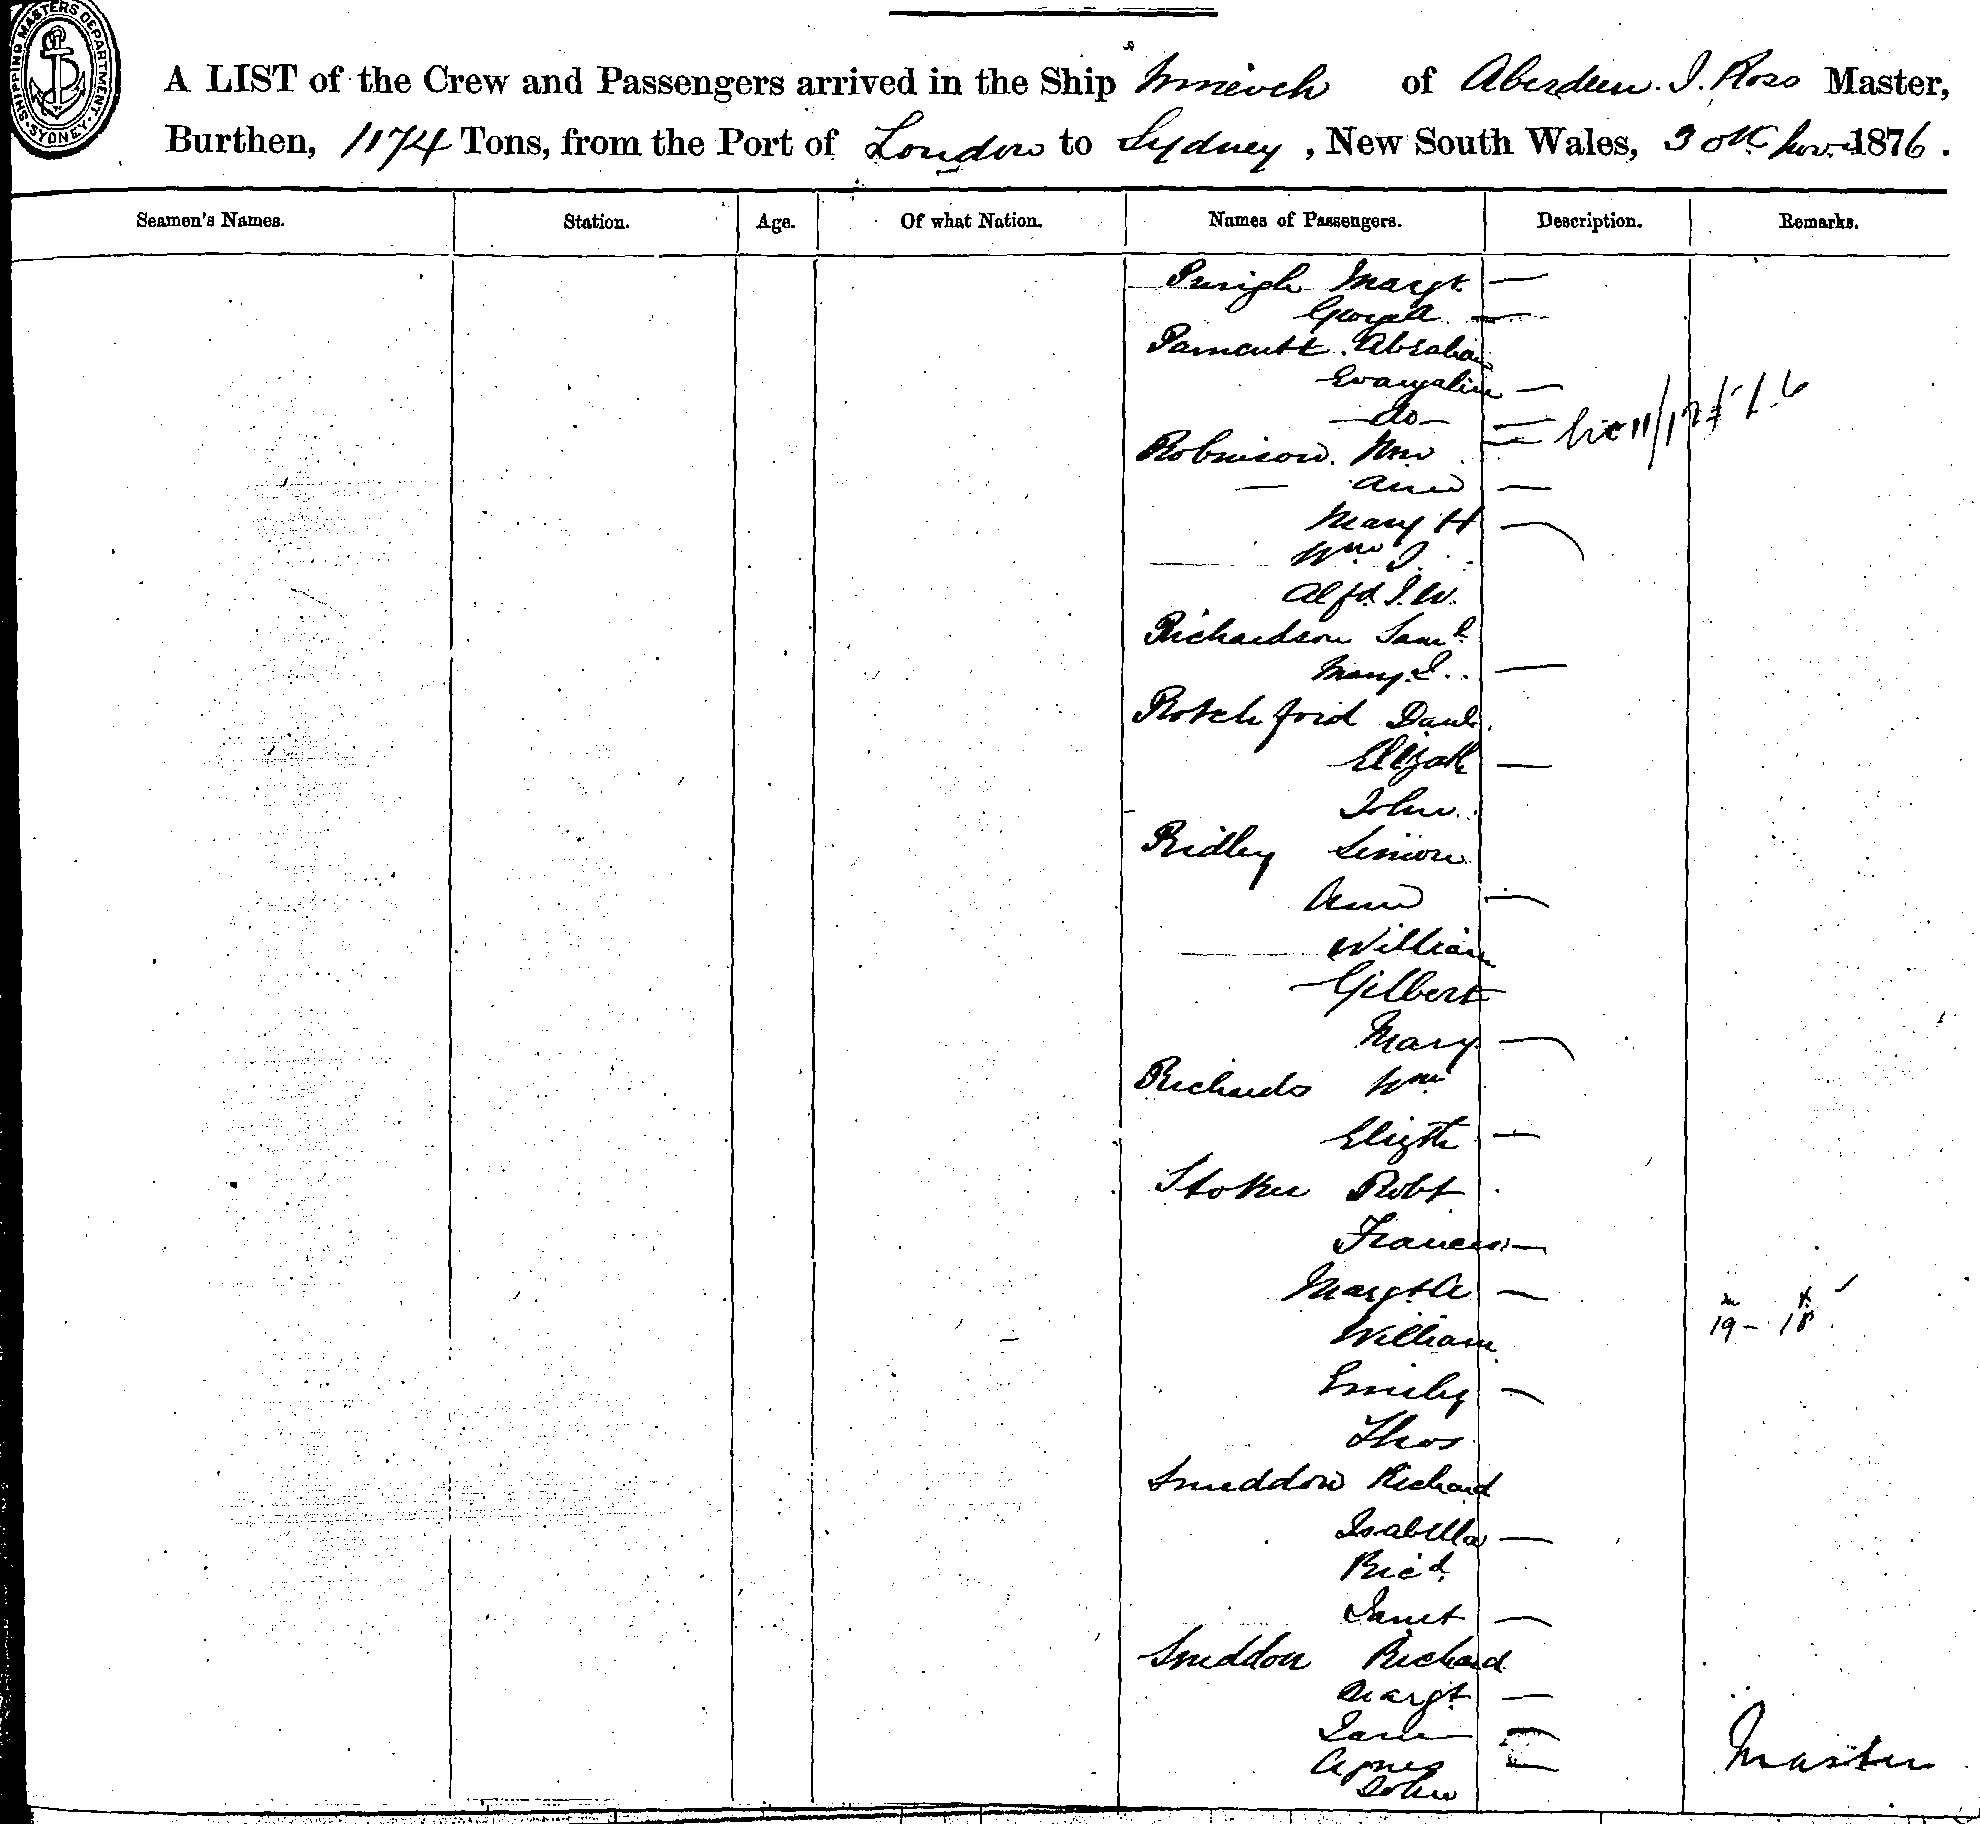 SHIPPING MASTERS DEPARTMENT SYDNEY
A LIST of the Crew and Passengers arrived in the Ship of Aberdeen. J. Ross Master,
Burthen, 1174 Tons, from the Port of London to Sydney, New South Wales, 30th Nov. 1876.
Seamen's Names. Station. Age. Of what Nation. Names of Passengers. Description. Remarks.
Margt —
—
Parncutt. Abraham
Evangaline —
—do— —
Robinson. Wm —
— Ann —
Mary H —
Wm J.
Alfd. J. W.
Richardson Saml
Mary J. —
Rotchford Danl.
Elizath —
John
Ridley Simon
Ann —
William
Gilbert
Mary —
Richards Wm
Elizth —
Stoker Robt
Frances —
Margt A —
19 - 18
William
Emily —
Thos
Sneddon Richard
Isabella —
Ricd.
Janet —
Sneddon Richard
Margt —
Jane —
Agnes —
Master
John